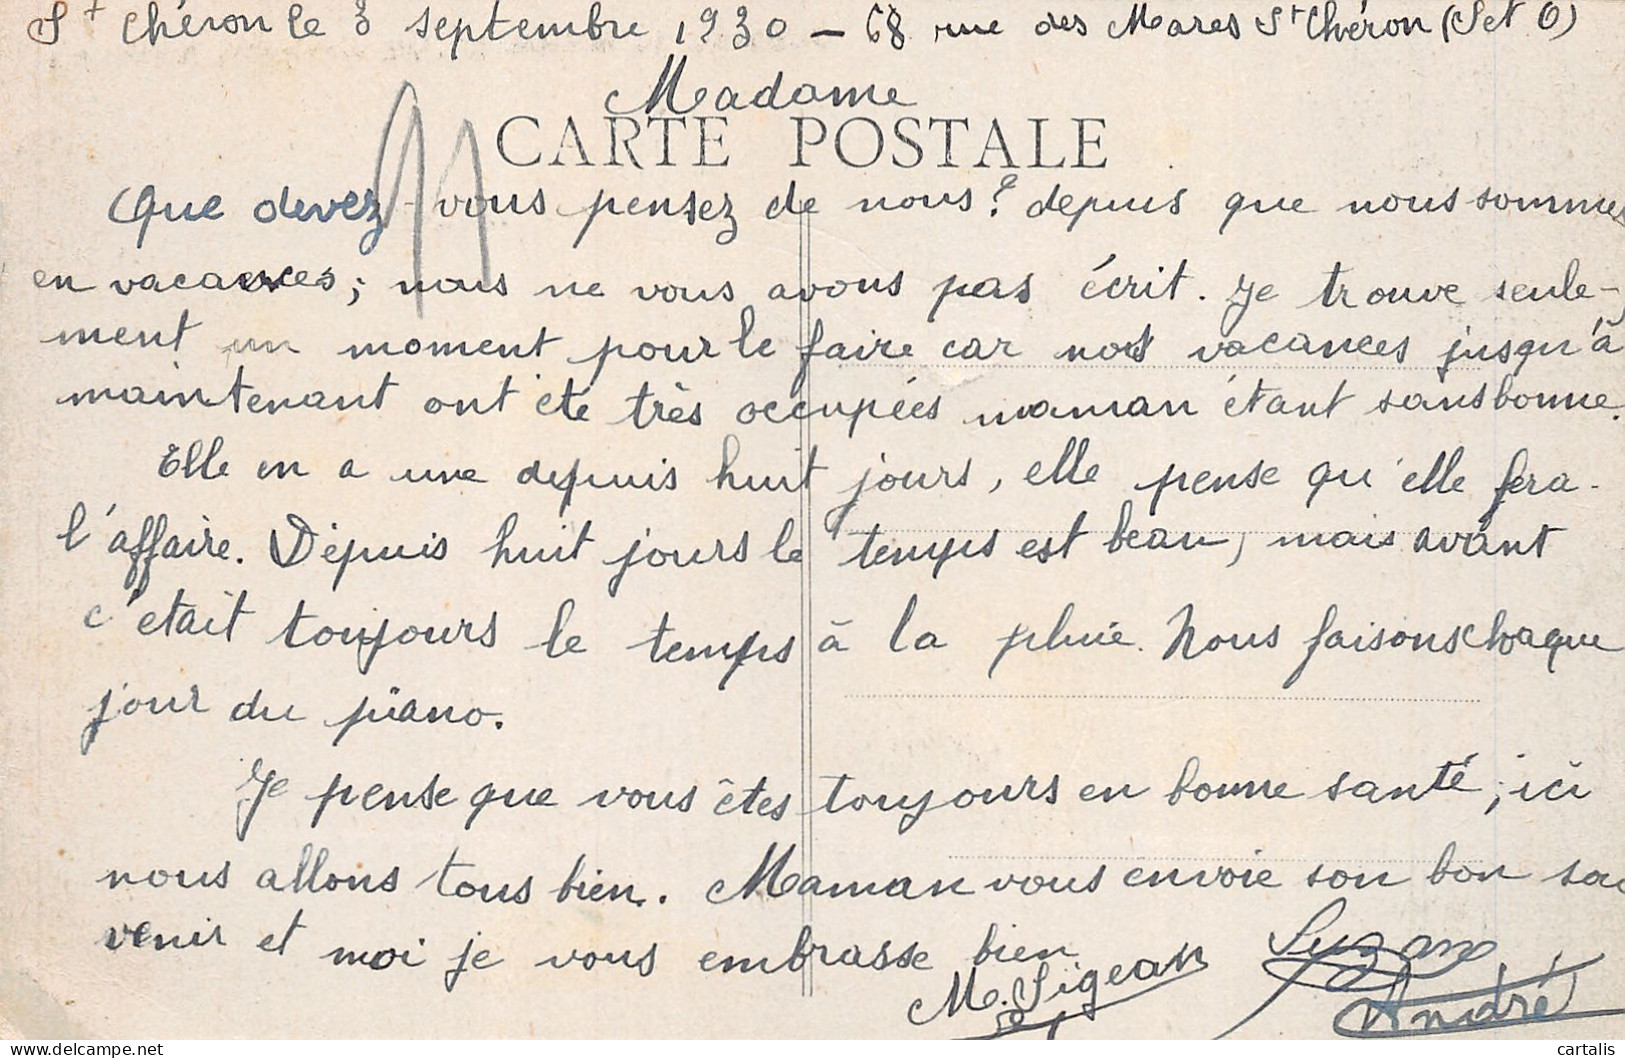 St Chéron le 3 septembre 1930 – 68 rue des Mares St Chéron (S et O)
Madame
CARTE POSTALE
Que devez-vous pensez de nous? depuis que nous sommes
en vacances; nous ne vous avons pas écrit. Je trouve seule-
ment un moment pour le faire car nos vacances jusqu'à
maintenant ont été très occupées maman étant sans bonne.
Elle en a une depuis huit jours, elle pense qu'elle fera
l'affaire. Depuis huit jours le temps est beau, mais avant
c'était toujours le temps à la pluie. Nous faisons chaque
jour du piano.
Je pense que vous êtes toujours en bonne santé, ici
nous allons tous bien. Maman vous envoie son bon sou
venir et moi je vous embrasse bien
Suzane
M. Sigean
André
cartalis